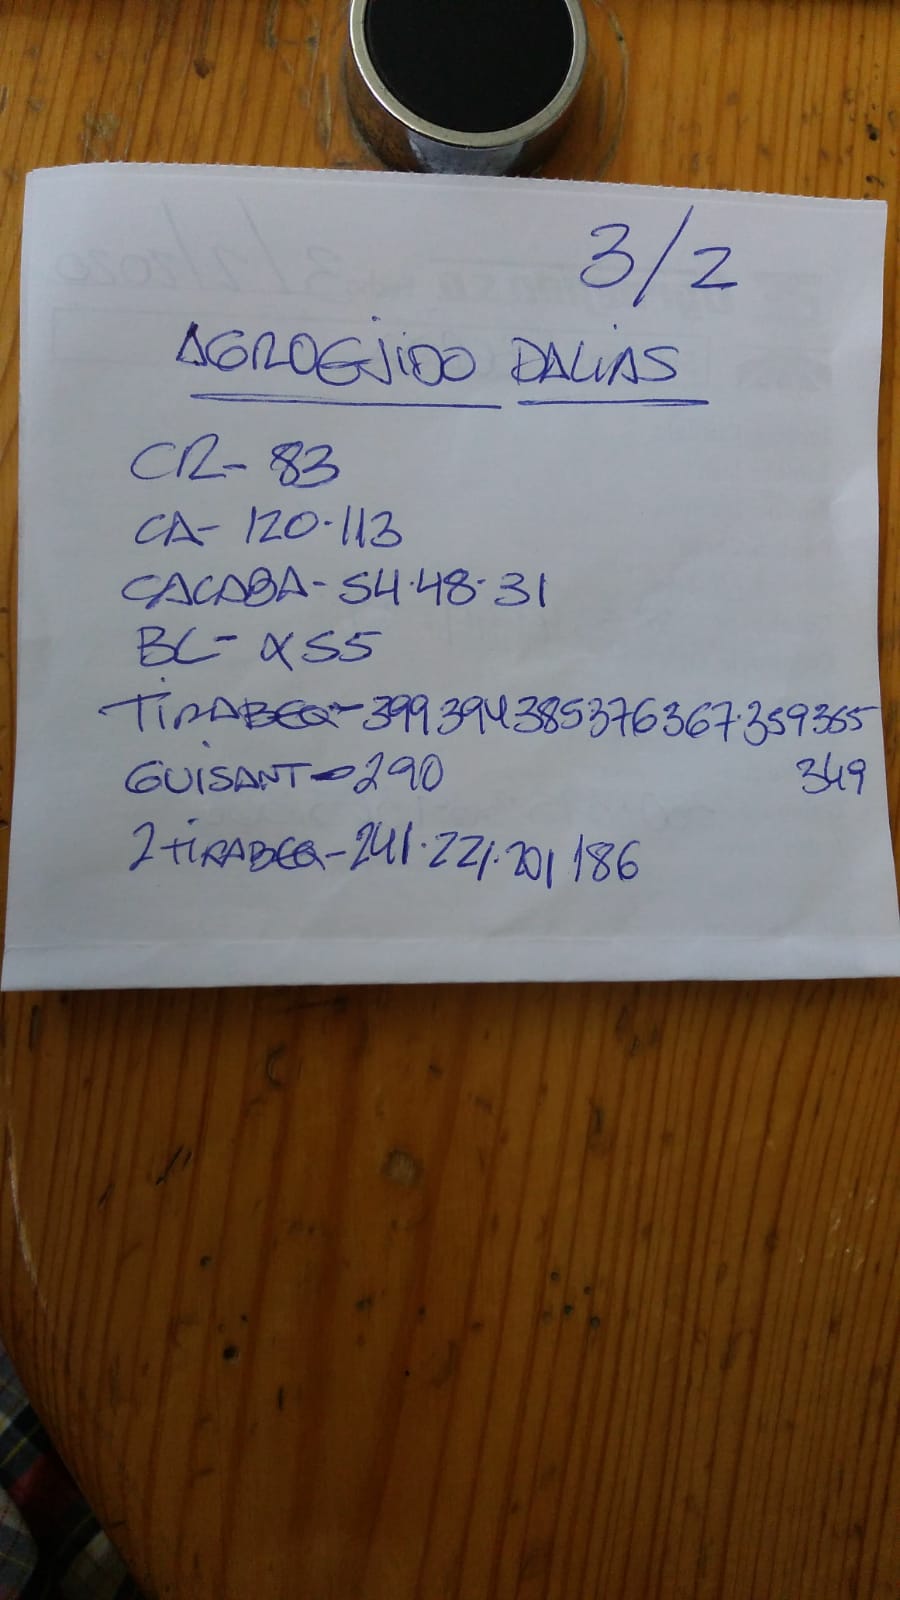 3/2
AGROEJIDO DALIAS
CR- 83
CA- 120·113
CACABA- 54·48·31
BC- α55
TIRABEQ- 399 394 385 376 367·359 355
GUISANT- 290 349
2 TIRABEQ- 241·221·201 186